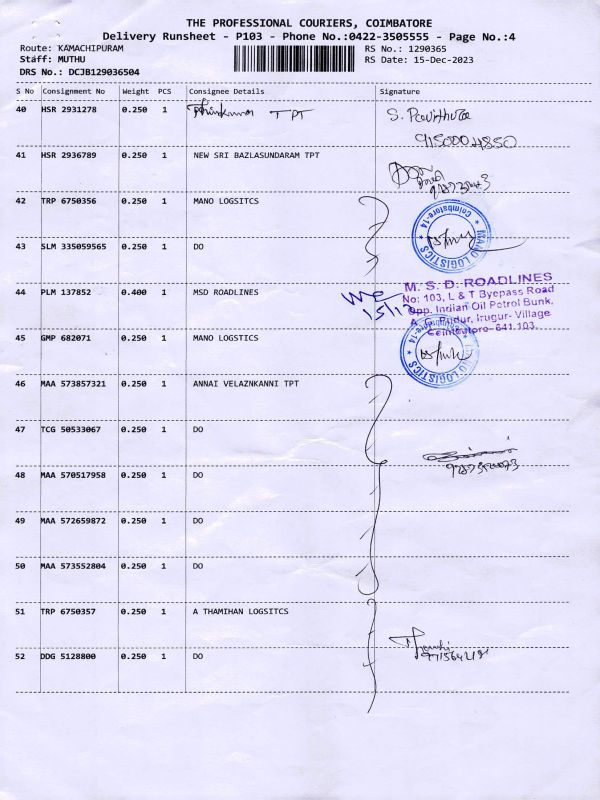 THE PROFESSIONAL COURIERS, COIMBATORE
Delivery Runsheet - P103 - Phone No.:0422-3505555 - Page No.:4
Route: KAMACHIPURAM RS No.: 1290365
Staff: MUTHU RS Date: 15-Dec-2023
DRS No.: DCJB129036504
S No Consignment No Weight PCS Consignee Details Signature
40 HSR 2931278 0.250 1 TPT S. Pavithra
41 HSR 2936789 0.250 1 NEW SRI BAZLASUNDARAM TPT
42 TRP 6750356 0.250 1 MANO LOGSITCS
Coimbatore-14
MANO LOGISTICS
43 SLM 335059565 0.250 1 DO
44 PLM 137852 0.400 1 MSD ROADLINES
15/12
M. S. D. ROADLINES
No: 103, L & T Byepass Road
Opp. Indian Oil Petrol Bunk,
A. G. Pudur, Irugur- Village
Coimbatore- 641 103.
45 GMP 682071 0.250 1 MANO LOGSITCS
LOGISTICS
46 MAA 573857321 0.250 1 ANNAI VELAZNKANNI TPT
47 TCG 50533067 0.250 1 DO
48 MAA 570517958 0.250 1 DO
49 MAA 572659872 0.250 1 DO
50 MAA 573552804 0.250 1 DO
51 TRP 6750357 0.250 1 A THAMIHAN LOGSITCS
52 DDG 5128800 0.250 1 DO